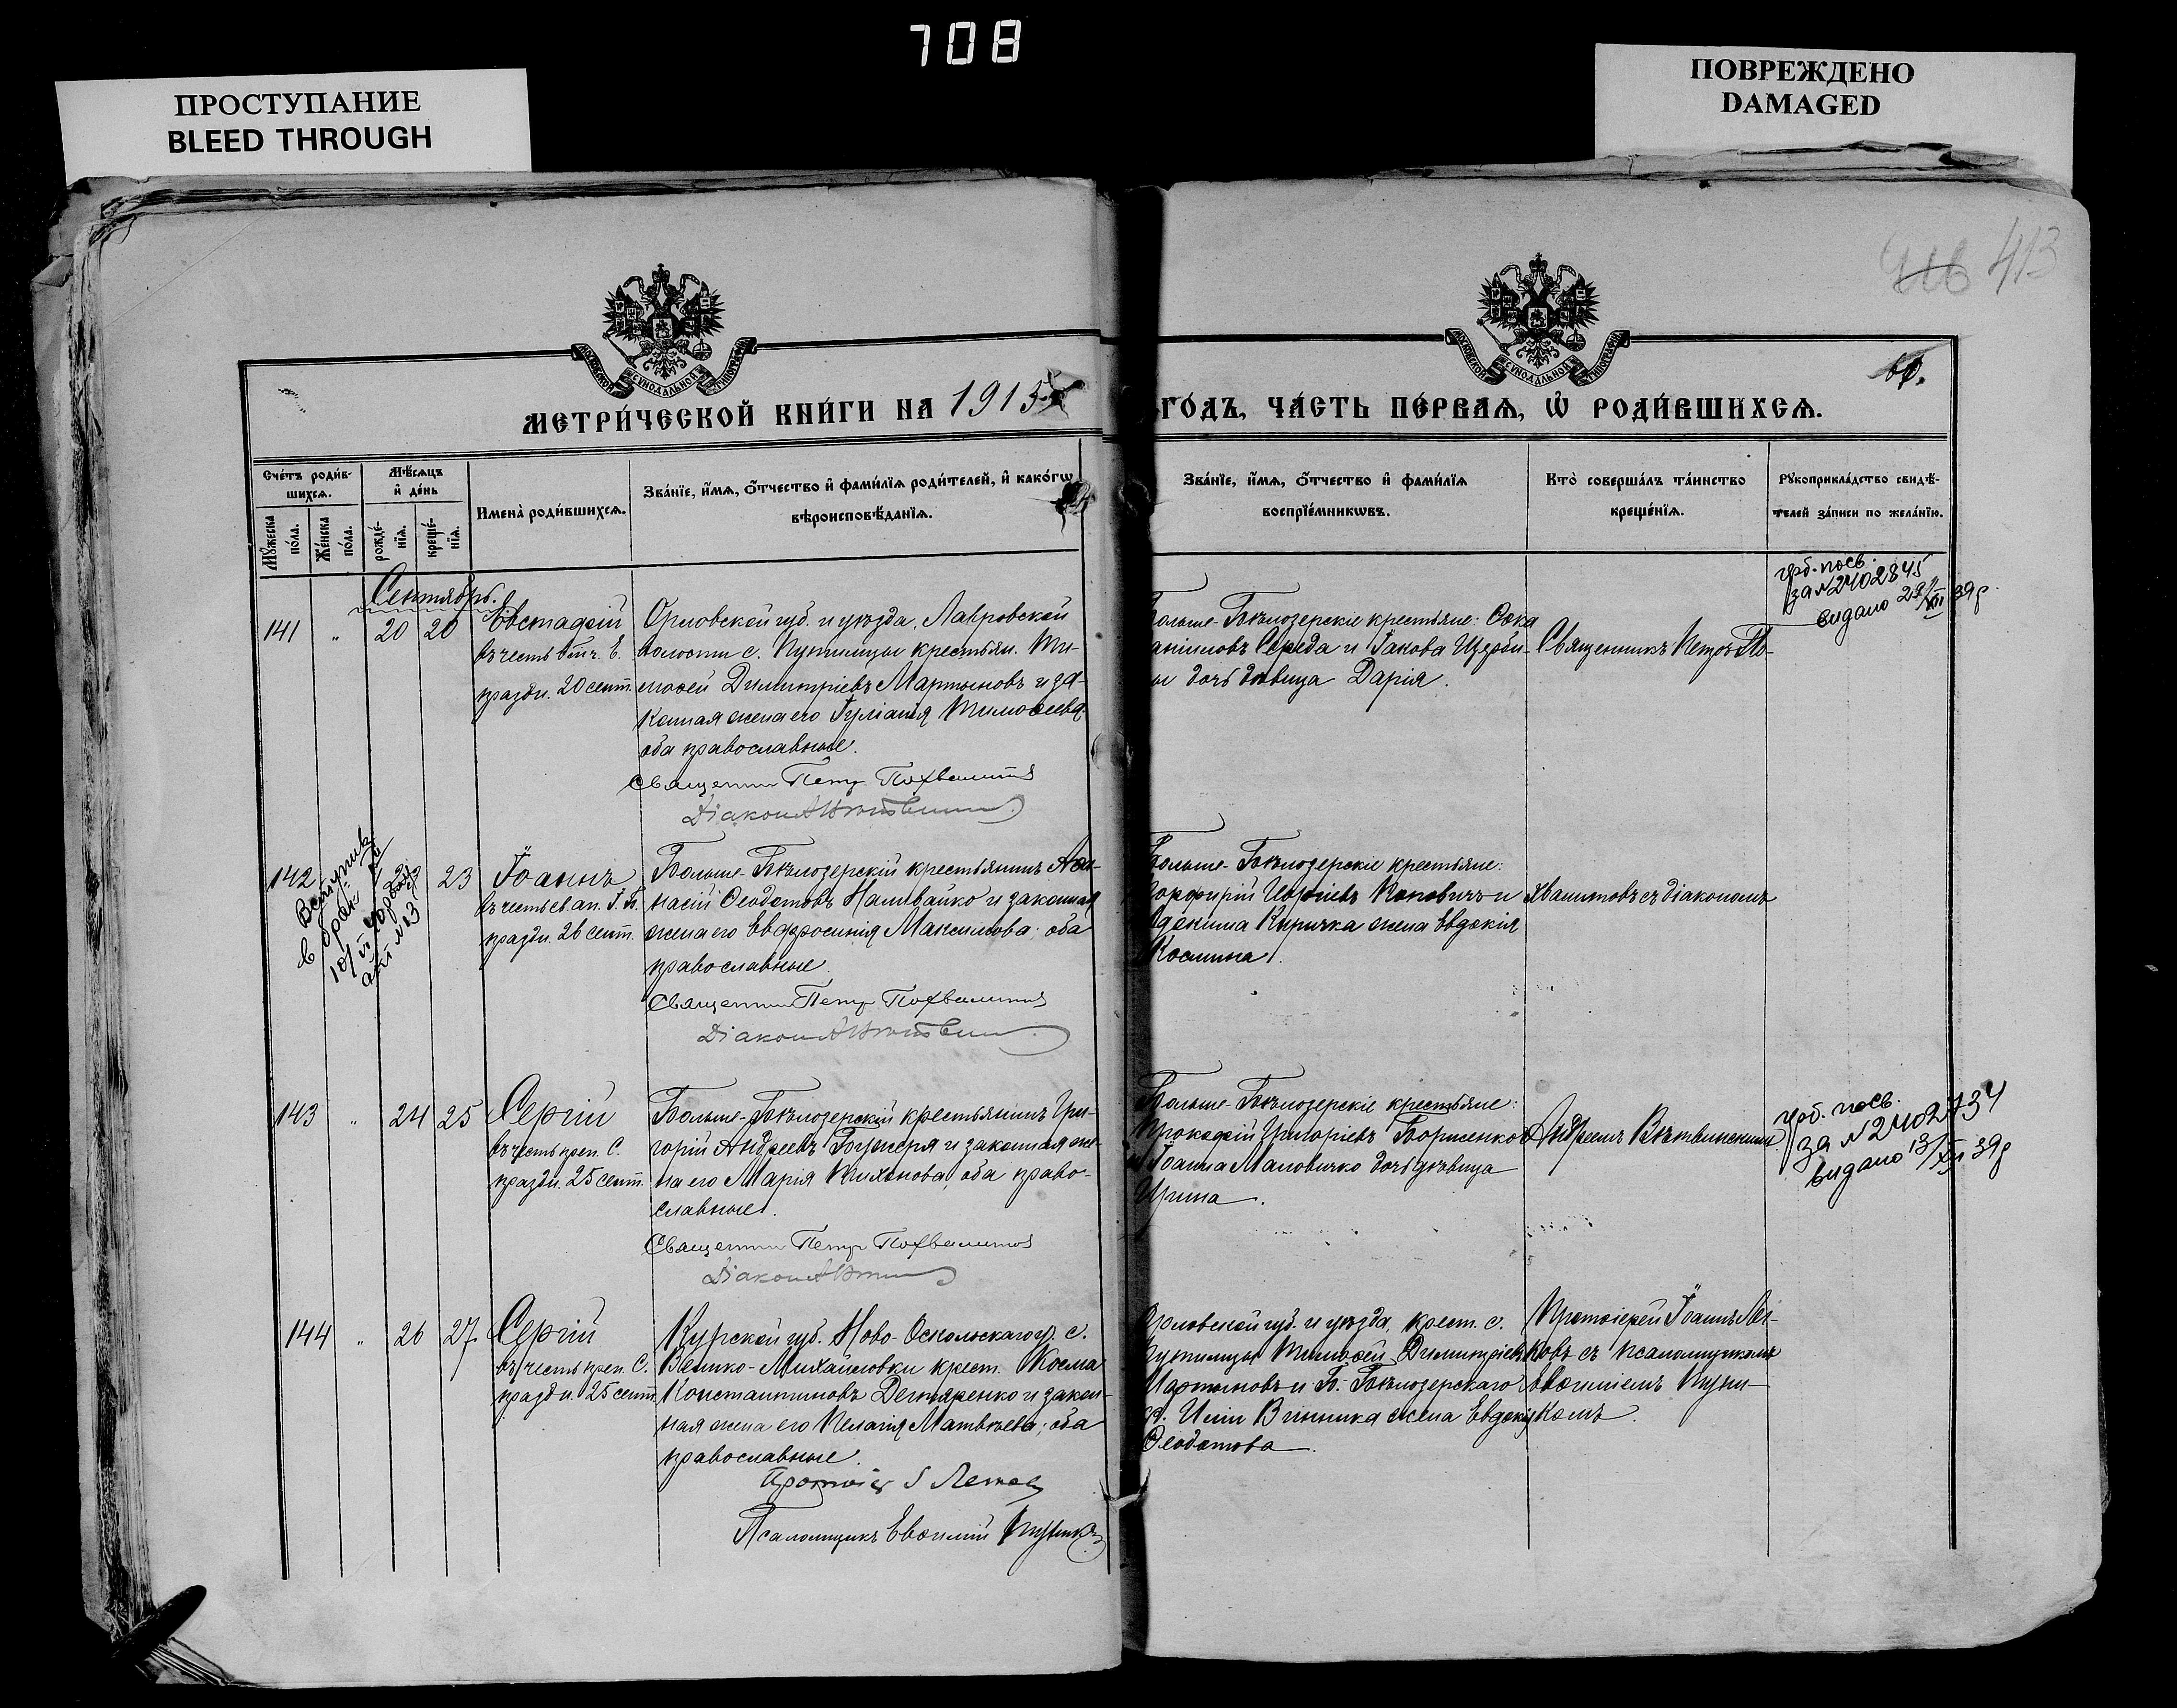 708
ПРОСТУПАНИЕ
BLEED THROUGH
ПОВРЕЖДЕНО
DAMAGED
413
МОСКОВСКОЙ СѴНОДАЛЬНОЙ ТИПОГРАФІИ
МОСКОВСКОЙ СѴНОДАЛЬНОЙ ТИПОГРАФІИ
МЕТРИ́ЧЕСКОЙ КНИ́ГИ НА 1915
ГО́ДЪ, ЧА́СТЬ ПЕ́РВАѦ, Ѡ҆ РОДИ́ВШИХСѦ.
Сче́тъ роди́в-
шихсѧ.
Мѣ́сѧцъ
и҆ де́нь
Мꙋ́жеска по́ла.
Же́нска по́ла.
рожде́-нїѧ.
креще́-нїѧ.
И҆мена̀ роди́вшихсѧ.
Зва́нїе, и҆́мѧ, ѻ҆́тчество и҆ фами́лїѧ роди́телей, и҆ како́гѡ
вѣроисповѣ́данїѧ.
Зва́нїе, и҆́мѧ, ѻ҆́тчество и҆ фами́лїѧ
воспрїе́мникѡвъ.
Кто̀ соверша́лъ та́инство
креще́нїѧ.
Рꙋкоприкла́дство свидѣ́-
телей за́писи по жела́нїю.
Сентябрь.
141 " 20 20
Евстафій
въ честь
празд. 20 сент.
Орловской губ. и уѣзда, Лавровской
волости с. Путимцы крестьян. Ти-
моѳей Димитріевъ Мартыновъ и за-
конная жена его Іуліанія Тимоѳеева
оба православные.
Священник Петр Похвалитов
Діакон
Больше-Бѣлозерскіе крестьяне: Ѳока
Середа и Іакова
дочь дѣвица Дарія.
Священникъ Петръ По-
за №2402845
видано 29/XII 39р.
142 23
Вступив
в брак
акт №13
Іоаннъ
въ честь св. ап. І. Б.
празд. 26 сент.
Больше-Бѣлозерскій крестьянинъ Аѳа-
насій Ѳеодотовъ Наливайко и законная
жена его Евфросинія Максимова; оба
православные.
Священник Петр Похвалитов
Діакон
Больше-Бѣлозерскіе крестьяне:
Порфирій и
Кирична жена Евдокія
Космина.
хвалитовъ съ діакономъ
143 " 24 25
Сергій
въ честь преп. С.
празд. 25 сент.
Больше-Бѣлозерскій крестьянинъ Гри-
горій Андреевъ и законная же-
на его Марія Тихонова, оба право-
славные.
Священник Петр Похвалитов
Діакон
Больше-Бѣлозерскіе крестьяне:
Прокофій Григоріевъ Борисенко
и Іоанна Маловичко дочь дѣвица
Ирина.
Андреемъ Вѣтвинскимъ.
за №2402734
видано 13/XII 39р
144 " 26 27
Сергій
въ честь преп. С.
празд. 25 сент.
Курской губ. Ново-Оскольскаго у. с.
Велико-Михайловки крест. Косма
Константиновъ Дегтяренко и закон-
ная жена его Пелагія Матвѣева; оба
православные.
Протоіер І Лежов
Псаломщикъ Евѳимій
Орловской губ. и уѣзда, крест. с.
Путимцы Тимоѳей Димитріевъ
Мартыновъ и Б. Бѣлозерскаго
кр. Иліи Винника жена Евдокія
Ѳеодотова.
Протоіерей Іоаннъ Ле-
жовъ съ псаломщикомъ
Евѳиміемъ
комъ.